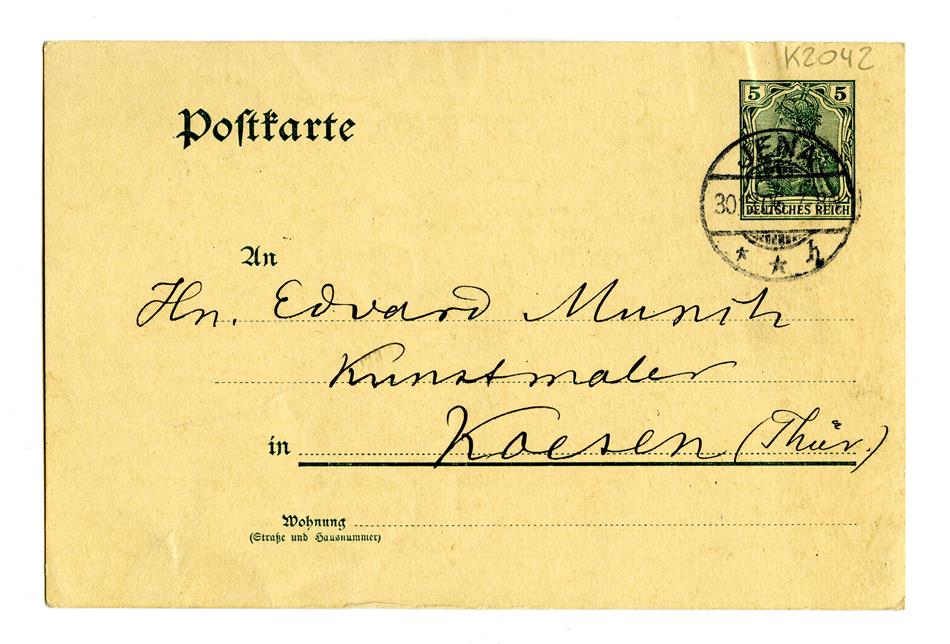 K2042
Postkarte
5 5
JENA
30
DEUTSCHES REICH
h
An
Hn. Edvard Munch
Kunstmaler
in Koesen (Thür.)
Wohnung
(Straße und Hausnummer)